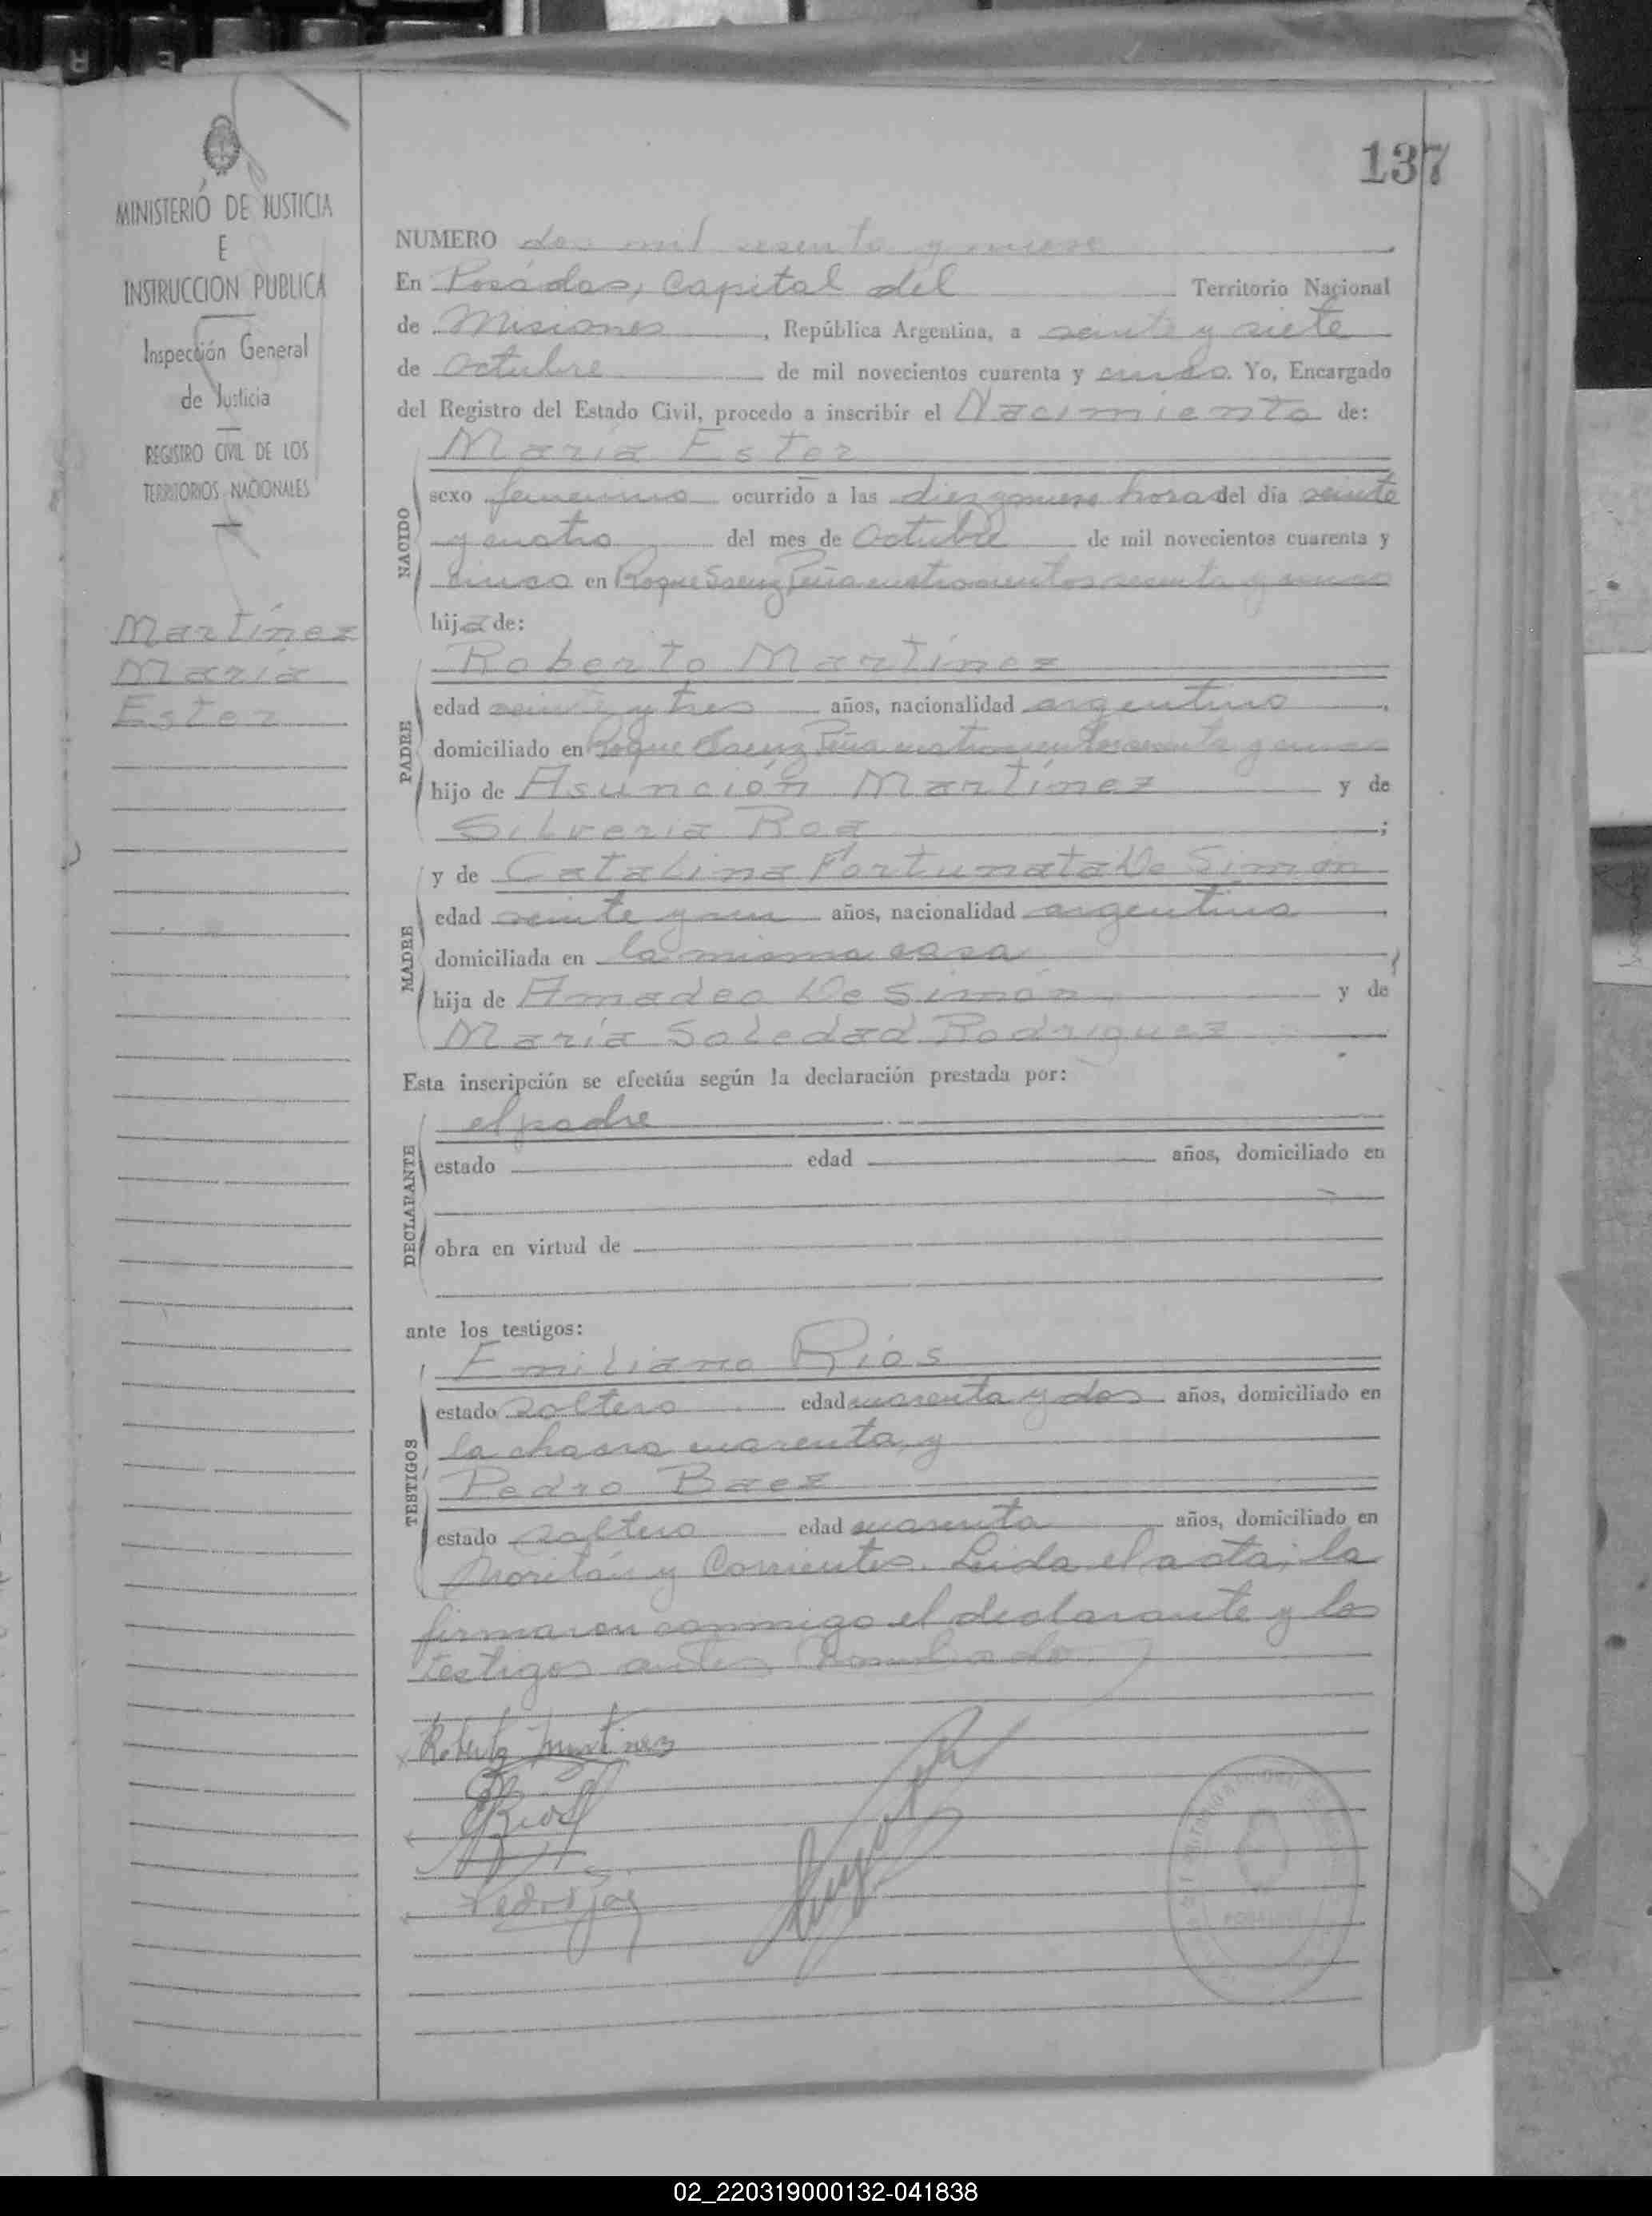 137
MINISTERIO DE JUSTICIA
E
INSTRUCCION PUBLICA
Inspección General
de Justicia
REGISTRO CIVIL DE LOS
TERRITORIOS NACIONALES
Martínez
María
Ester
NUMERO dos mil sesenta y nueve
En Posádas, Capital del Territorio Nacional
de Misiones, República Argentina, a veinte y siete
de Octubre de mil novecientos cuarenta y cinco. Yo, Encargado
del Registro del Estado Civil, procedo a inscribir el Nacimiento de:
María Ester
NACIDO
sexo femenino ocurrido a las diez y nueve horas del día veinte
y cuatro del mes de Octubre de mil novecientos cuarenta y
cinco en Roque Saenz Peña cuatrocientos sesenta y cinco
hija de:
PADRE
Roberto Martínez
edad veinte y tres años, nacionalidad argentino,
domiciliado en Roque Saenz Peña cuatrocientos sesenta y cinco
hijo de Asunción Martínez y de
Silveria Roa;
MADRE
y de Catalina Fortunata De Simón
edad veinte y un años, nacionalidad argentina
domiciliada en la misma casa,
hija de Amadeo De Simón y de
María Soledad Rodriguez
Esta inscripción se efectúa según la declaración prestada por:
DECLARANTE
el padre
estado edad años, domiciliado en
obra en virtud de
ante los testigos:
TESTIGOS
Emiliano Ríos
estado soltero edad cuarenta y dos años, domiciliado en
la chacra cuarenta, y
Pedro Baez
estado soltero edad cuarenta años, domiciliado en
y Corrientes. Leida el acta, la
firmaron conmigo el declarante y los
testigos antes nombrado
Roberto Martinez
ERios
POSADAS
02_220319000132-041838